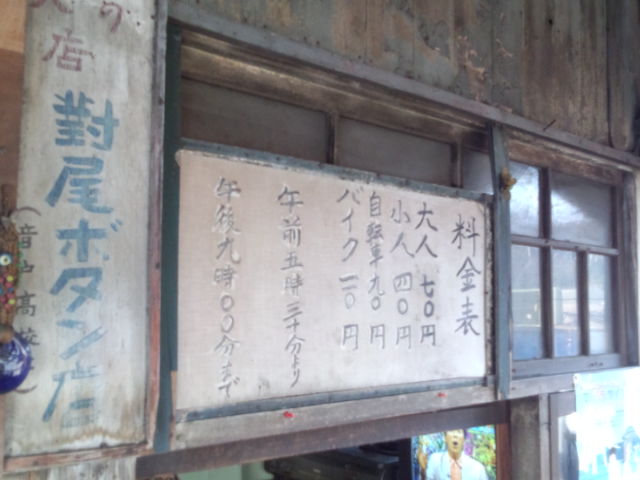 料金表
大人 七〇円
小人 四〇円
自転車九〇円
バイク 一一〇円
午前五時三十分より
午後九時〇〇分まで
の店
對尾ボタン店